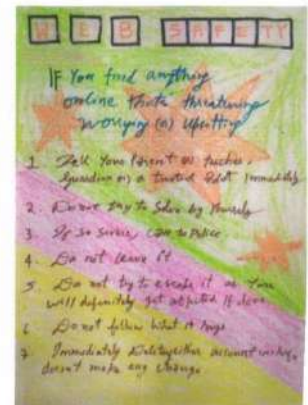 WEB SAFETY
IF You find anything
online thats threatening
worrying (or) upsetting
1. Tell Your Parent or teacher,
guardian or) a trusted Adult Immediately
2. Do not try to Solve by Yourself
3. If So Serious, Call to Police
4. Do not leave it
5. Do not try to escape it as Your
will definitely get affected If done
6. Do not follow What it Says
7. Immediately account
doesn't make any